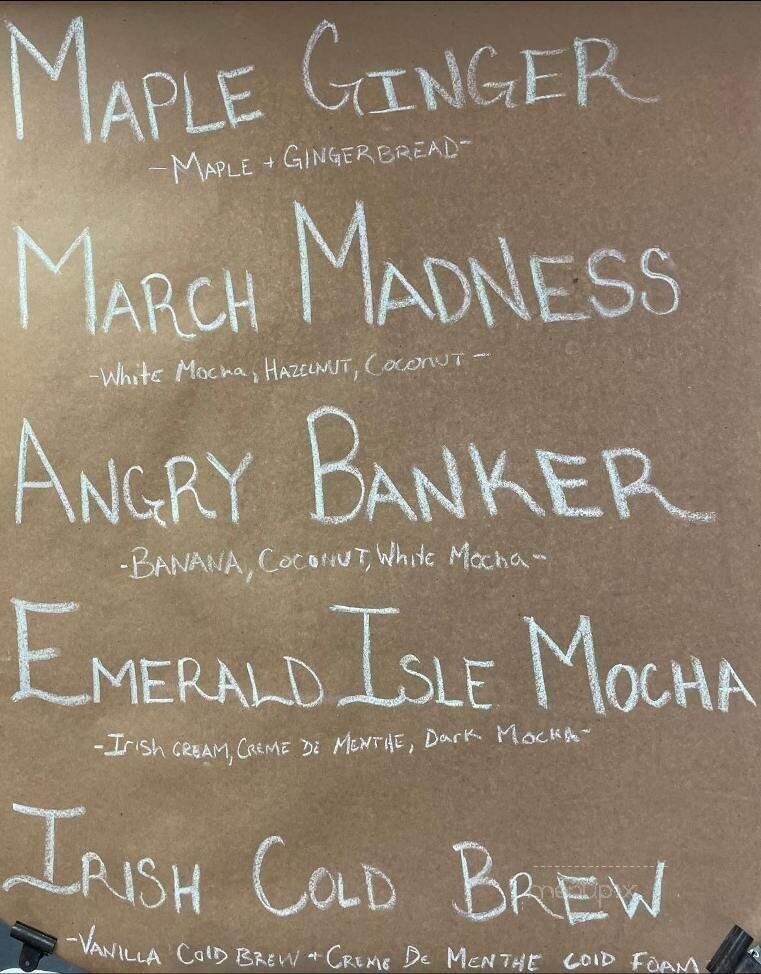 MAPLE GINGER
- MAPLE + GINGERBREAD -
MARCH MADNESS
- White Mocha, HAZELNUT, COCONUT -
ANGRY BANKER
- BANANA, COCONUT, White Mocha -
EMERALD ISLE MOCHA
- Irish CREAM, CREME DE MENTHE, Dark MOCHA -
IRISH COLD BREW
menupix
- VANILLA COlD BREW + CREME De MENTHE COlD FOAM